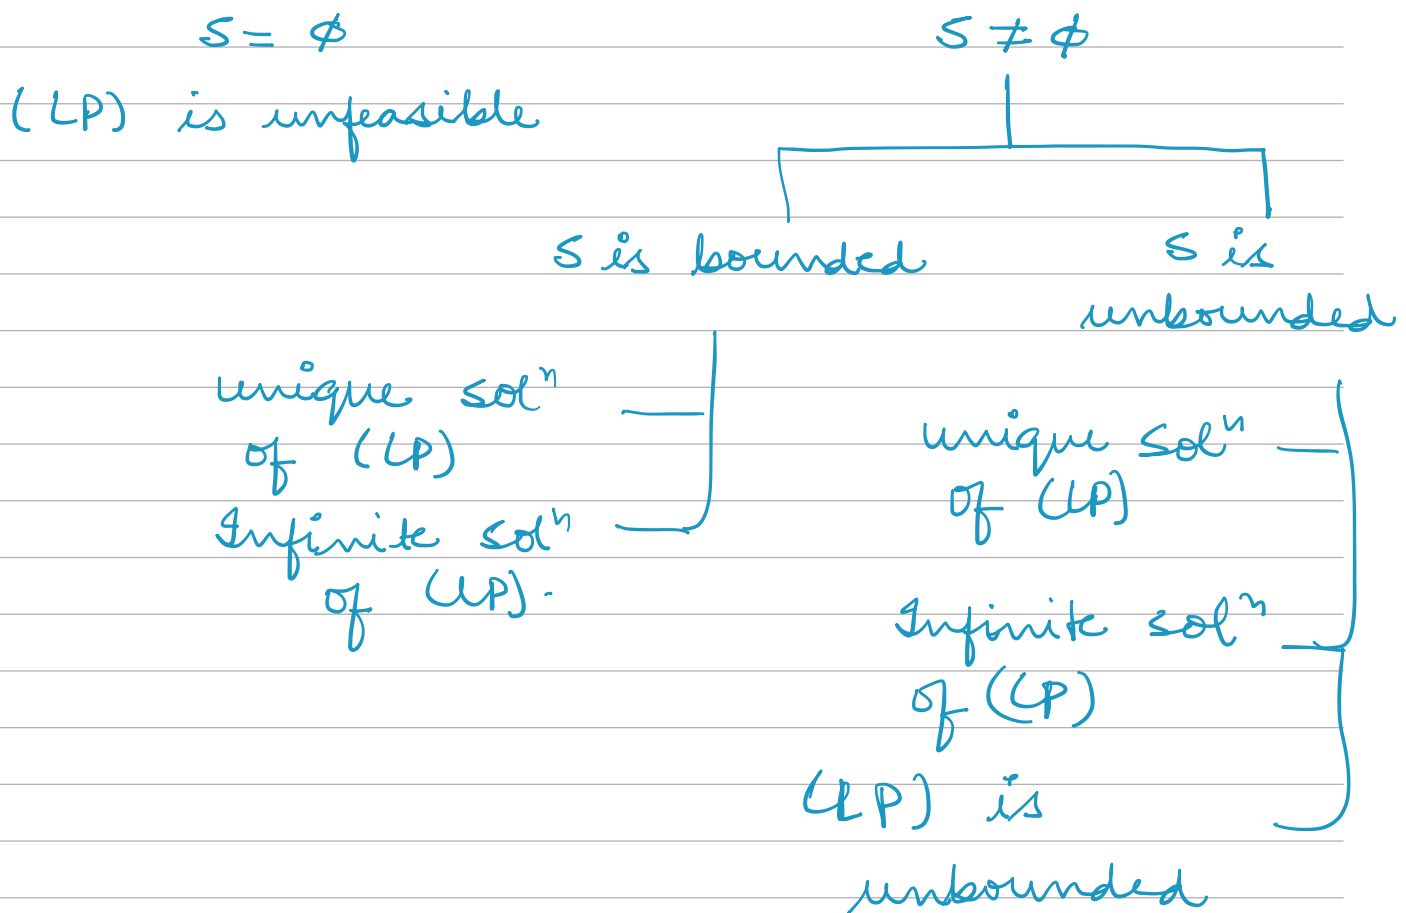 S = ϕ
S ≠ ϕ
(LP) is unfeasible
S is bounded
S is
unbounded
unique solⁿ
of (LP)
Infinite solⁿ
of (LP).
unique solⁿ
of (LP)
Infinite solⁿ
of (LP)
(LP) is
unbounded